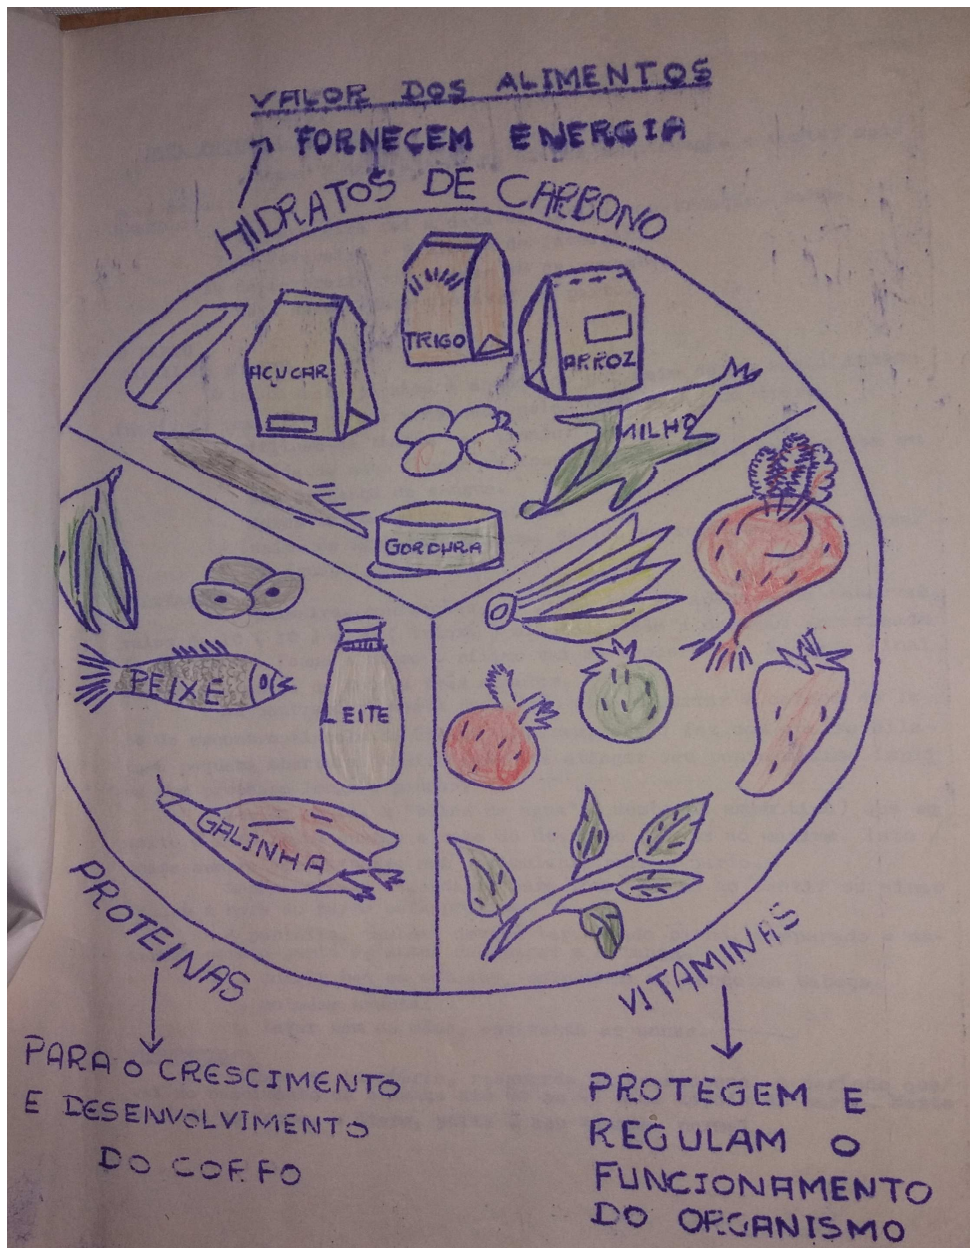 VALOR DOS ALIMENTOS
FORNEÇEM ENERGIA
HIDRATOS DE CARBONO
TRIGO
AÇUCAR
ARROZ
MILHO
GORDURA
PEIXE
LEITE
GALINHA
PROTEINAS
VITAMINAS
PARA O CRESCIMENTO
E DESENVOLVIMENTO
DO CORPO
PROTEGEM E
REGULAM O
FUNCIONAMENTO
DO ORGANISMO